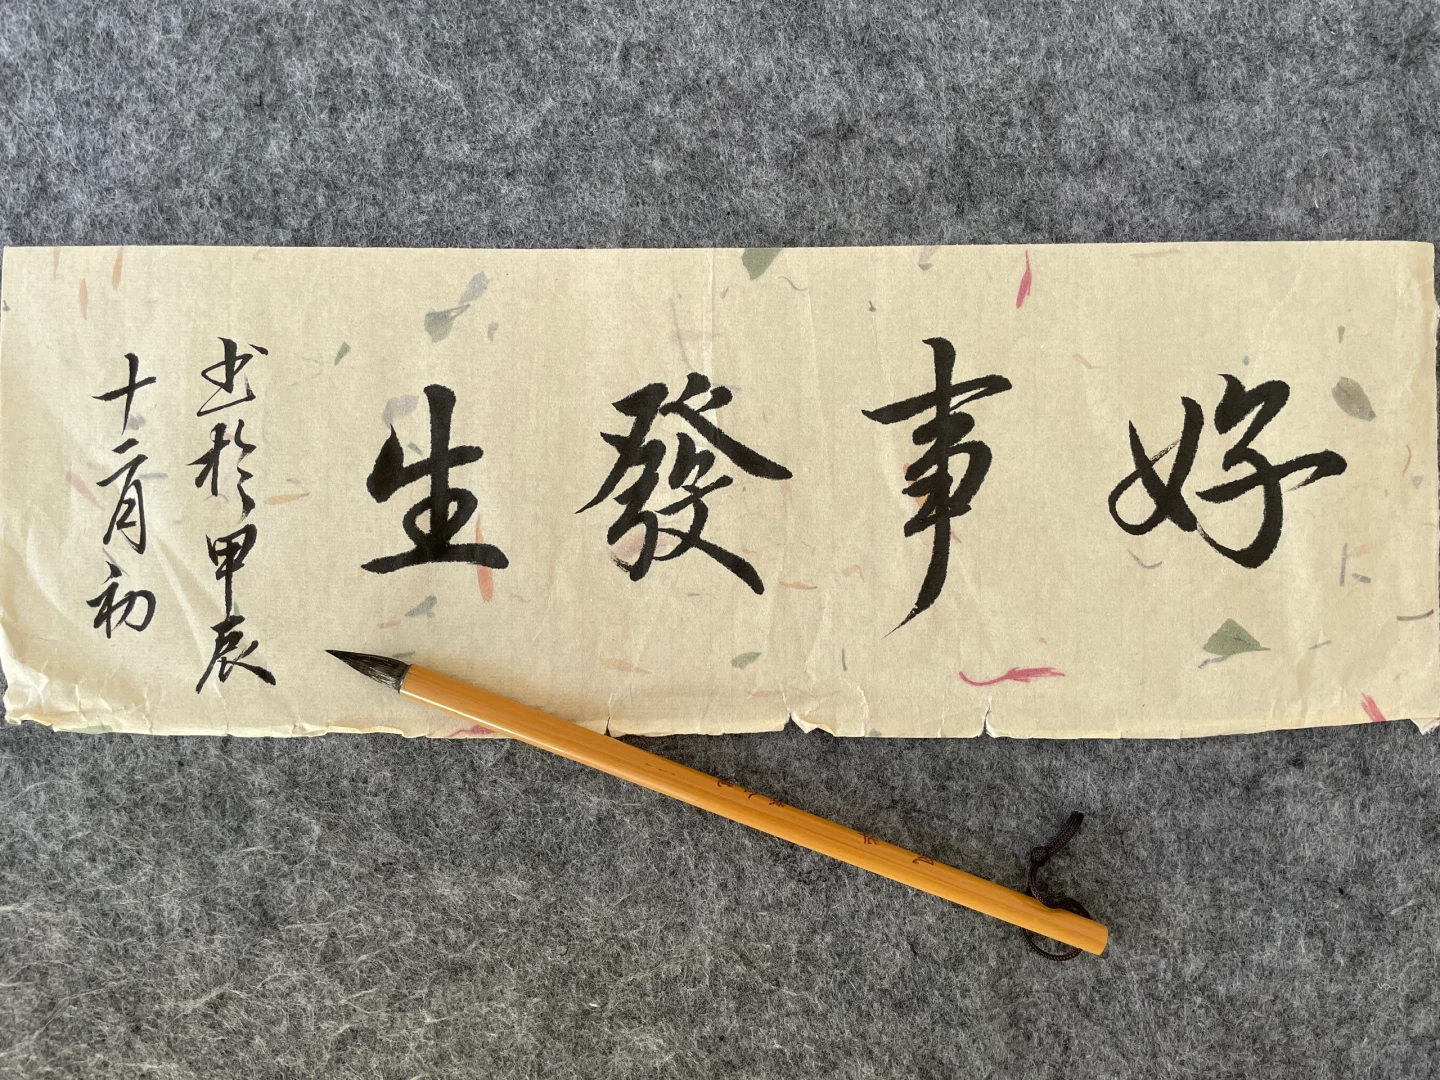 好事發生
书於甲辰
十二月初